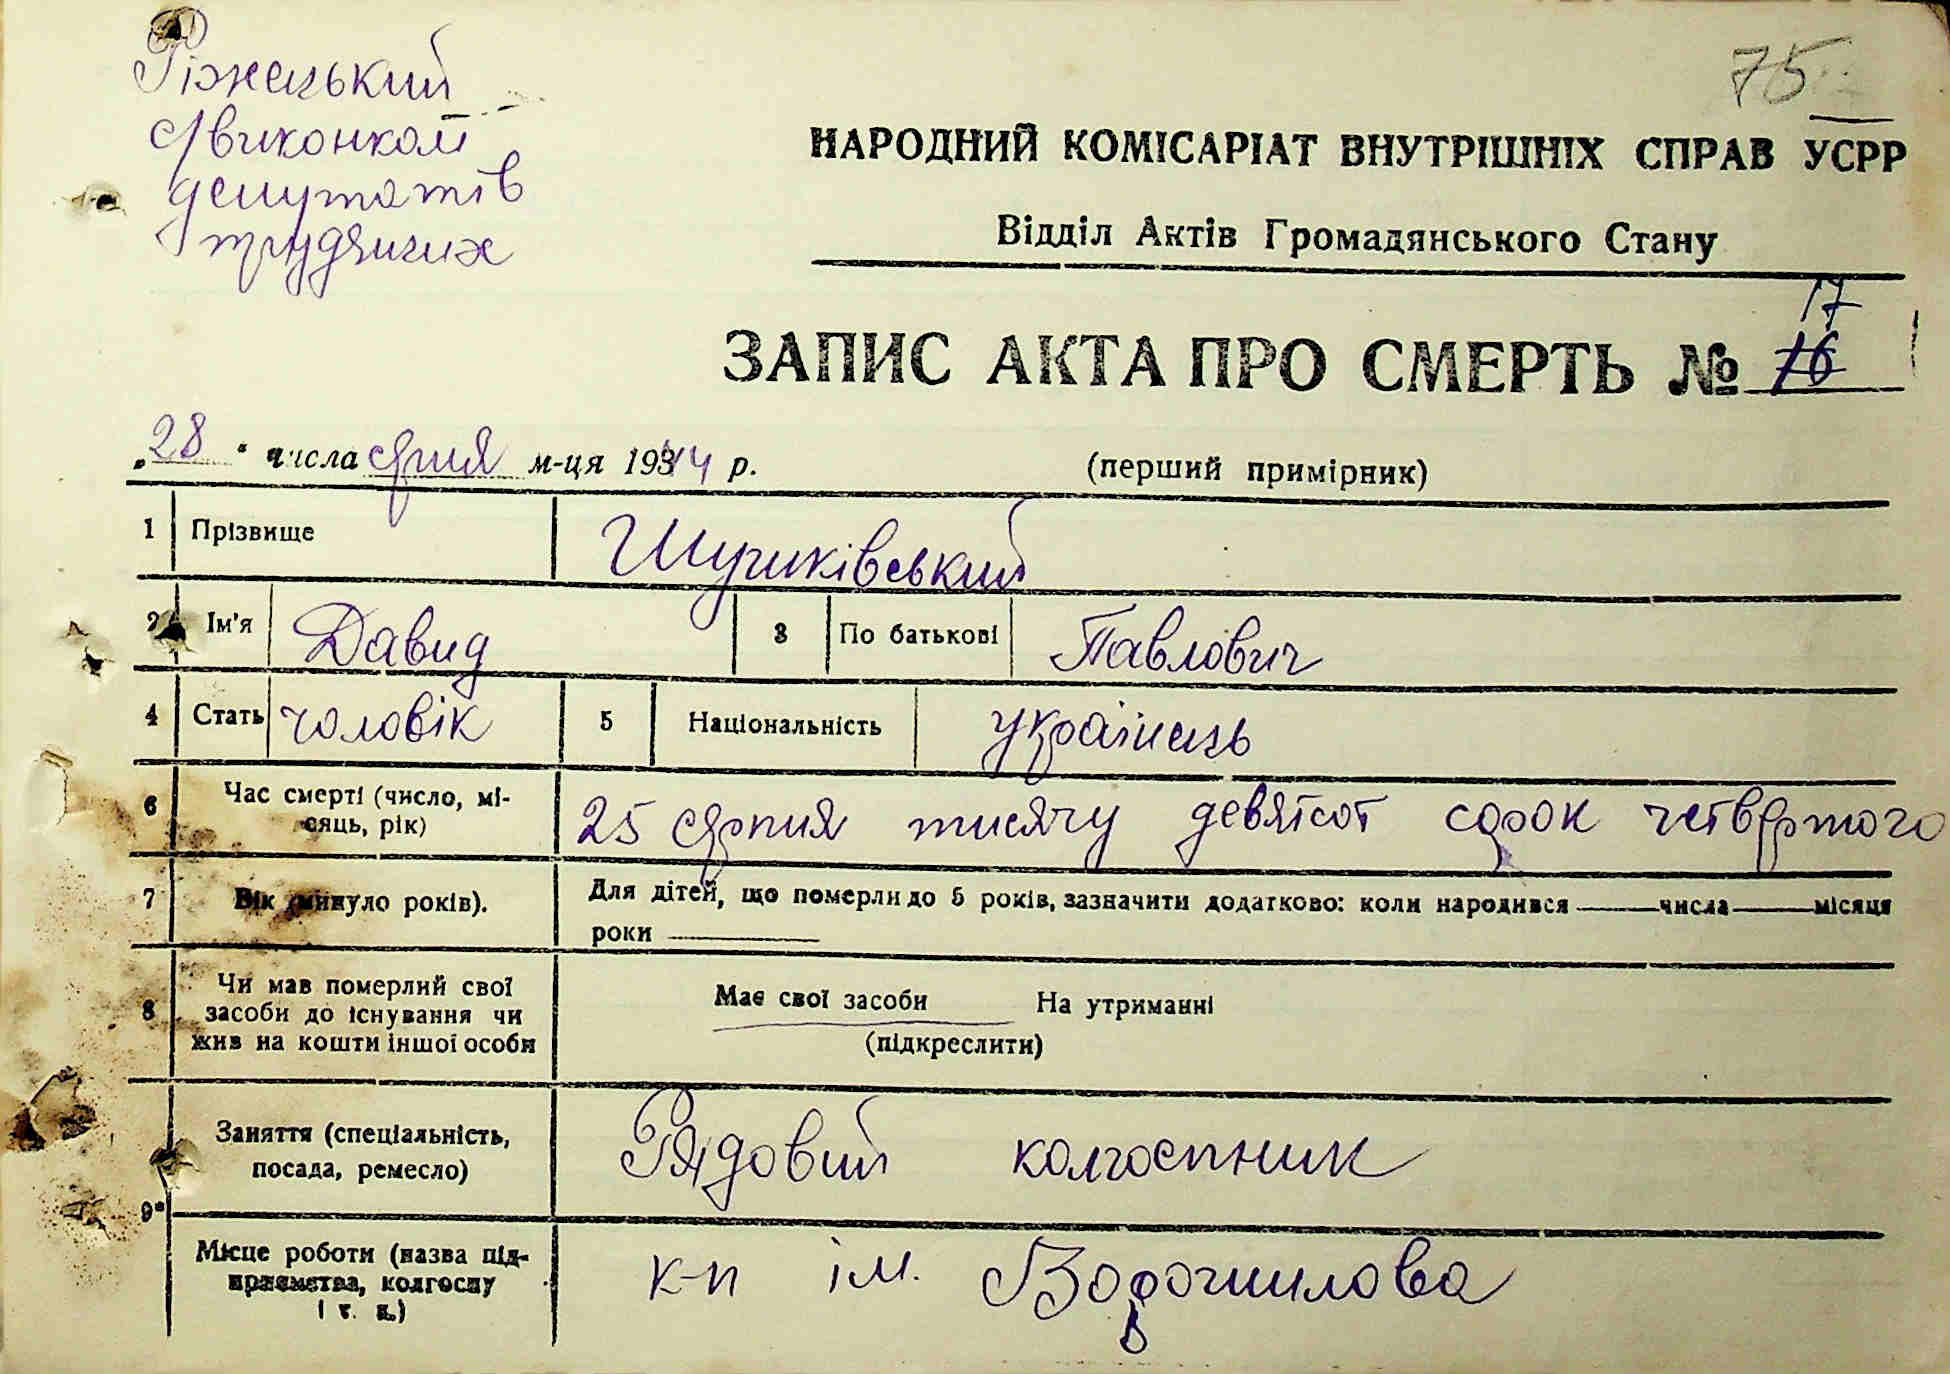 Ріжецький
с/виконком
депутатів
трудящих
75
НАРОДНИЙ КОМІСАРІАТ ВНУТРІШНІХ СПРАВ УСРР
Відділ Актів Громадянського Стану
17
ЗАПИС АКТА ПРО СМЕРТЬ № 16
„28“ числа серпня м-ця 1944 р. (перший примірник)
1 Прізвище
2 Ім'я Давид 3 По батькові Павлович
4 Стать чоловік 5 Національність українець
6 Час смерті (число, мі-
сяць, рік) 25 серпня тисячу девятсот сорок четвертого
7 Вік (минуло років). Для дітей, що померли до 5 років, зазначити додатково: коли народився — числа — місяця
роки
8 Чи мав померлий свої
засоби до існування чи
жив на кошти іншої особи
Має свої засоби На утриманні
(підкреслити)
Заняття (спеціальність,
посада, ремесло) Рядовий колгоспник
9
Місце роботи (назва під-
приємства, колгоспу
і т. п.) к-п ім. Ворошилова